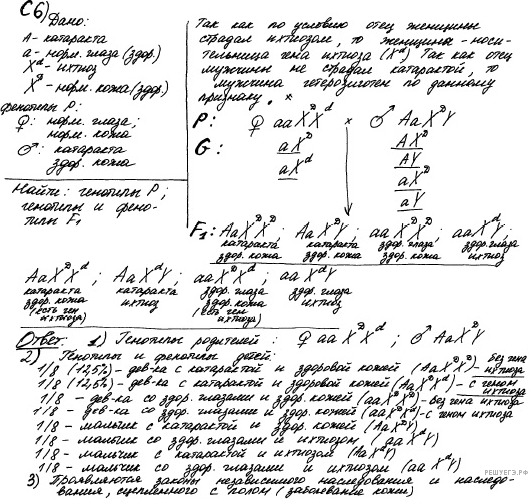 С6) Дано:
А - катаракта
а - норм. глаза (здор.)
Xᵈ - ихтиоз
Xᴰ - норм. кожа (здор.)
фенотипы Р:
♀: норм. глаза;
норм. кожа
♂: катаракта
здор. кожа
Найти: генотипы Р;
генотипы и фено-
типы F₁
Так как по условию отец женщины
страдал ихтиозом, то женщины - носи-
тельница гена ихтиоза (Xᵈ) Так как отец
мужчины не страдал катарактой, то
мужчина гетерозиготен по данному
признаку. *
Р: ♀ aaXᴰXᵈ × ♂ AaXᴰY
G: aXᴰ AXᴰ
aXᵈ AY
aXᴰ
aY
F₁: AaXᴰXᴰ; AaXᴰY; aaXᴰXᴰ; aaXᵈY;
катаракта катаракта здор. глаза здор. глаза
здор. кожа здор. кожа здор. кожа ихтиоз
AaXᴰXᵈ; AaXᵈY; aaXᴰXᵈ; aaXᵈY
катаракта катаракта здор. глаза здор. глаза
здор. кожа ихтиоз здор. кожа ихтиоз
(есть ген ихтиоза) (есть ген ихтиоза)
Ответ: 1) Генотипы родителей: ♀ aaXᴰXᵈ; ♂ AaXᴰY
2) Генотипы и фенотипы детей:
1/8 (12,5%) - дев-ка с катарактой и здоровой кожей (AaXᴰXᴰ) - без гена ихтиоза
1/8 (12,5%) - дев-ка с катарактой и здоровой кожей (AaXᴰXᵈ) - с геном ихтиоза
1/8 - дев-ка со здор. глазами и здор. кожей (aaXᴰXᴰ) - без гена ихтиоза
1/8 - дев-ка со здор. глазами и здор. кожей (aaXᴰXᵈ) - с геном ихтиоза
1/8 - мальчик с катарактой и здор. кожей (AaXᴰY)
1/8 - мальчик со здор. глазами и ихтиозом (aaXᵈY)
1/8 - мальчик с катарактой и ихтиозом (AaXᵈY)
1/8 - мальчик со здор. глазами и ихтиозом (aaXᵈY)
3) Проявляются законы независимого наследования и наследо-
вания, сцепленного с полом (заболевание кожи)
РЕШУЕГЭ.РФ